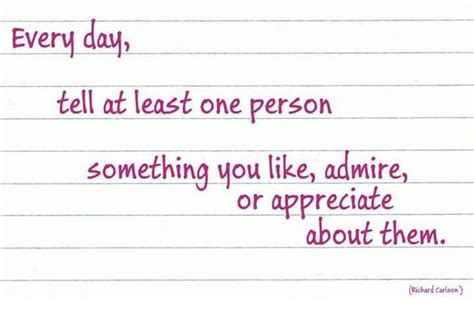 Every day,
tell at least one person
something you like, admire,
or appreciate
about them.
(Richard Carlson)